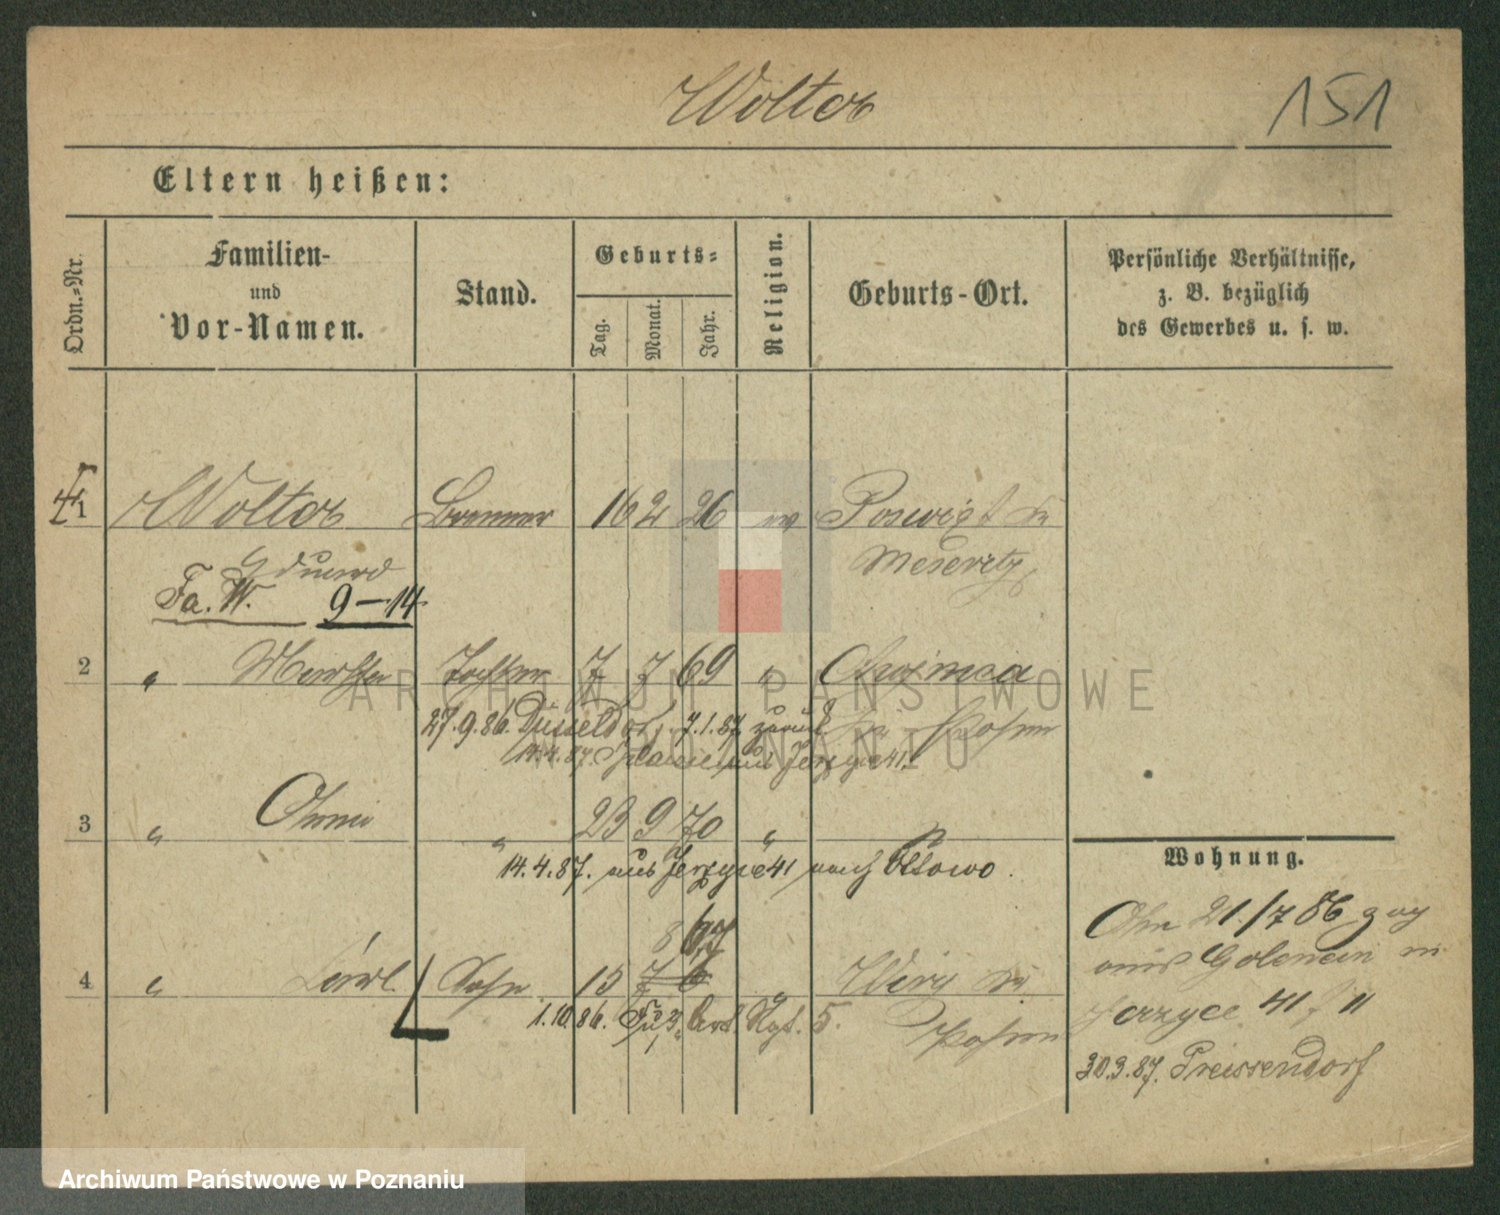 Wolter
151
Eltern heißen:
Ordn.-Nr.
Familien-
und
Vor-Namen.
Stand.
Geburts-
Tag.
Monat.
Jahr.
Religion.
Geburts-Ort.
Persönliche Verhältnisse,
z. B. bezüglich
des Gewerbes u. s. w.
1 Wolter Brenner 16 2 26 ev
Eduard Meseritz
Fa. W. 9–14
2 " Martha Tochter 7 7 69 " Owinsca
27.9.86. Düsseldorf. 7.1.87. zurück Posen
14.4.87. aus Jerzyce 41.
3 " " 23 9 70 " "
14.4.87. aus Jerzyce 41 nach
8 67
4 " Carl Sohn 15 7 6 " Wiry
1.10.86. Art. Rgt. 5. Posen
Wohnung.
21./7 86 zug
aus in
Jerzyce 41 / 11
30.3.87.
ARCHIWUM PAŃSTWOWE
W POZNANIU
Archiwum Państwowe w Poznaniu